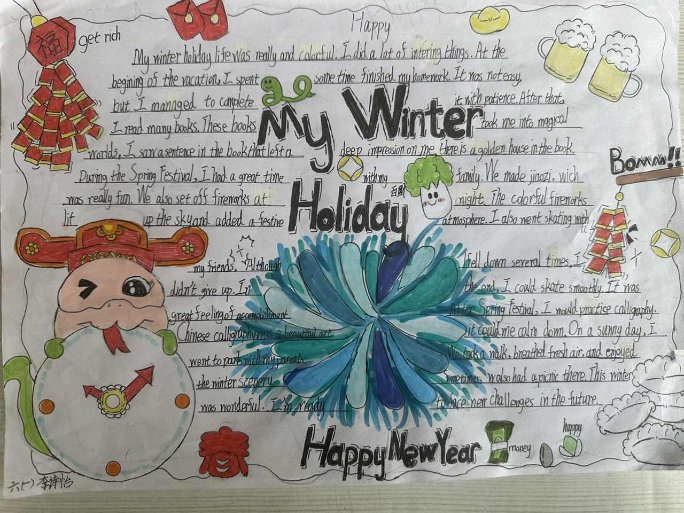 福
get rich
Happy
My winter holiday life was really and colorful. I did a lot of intering things. At the
begining of the vacation, I spent some time finished my homework. It was not easy,
but I managed to camplete it with patience. After that,
I read many books. These books took me into magical
worlds. I saw a sentence in the book that left a deep impression on me, there is a golden house in the book.
My Winter
Holiday
Bomm!!
During the Spring Festival, I had a great time with my family. We made jiaozi, wich
was really fun. We also set off fireworks at night. The colorful fireworks
lit up the sky and added a festive atmosphere. I also went skating with
my friends. Although I fell down several times, I
didn't give up. In the end, I could skate smoothly. It was
great feeling of accomplishment. Spring Festival, I would practice calligraphy.
Chinese calligraphy was a beautiful art it could me calm down. On a sunny day, I
went to park with my parents. took a walk, breathed fresh air, and enjoyed
the winter scenery. also had a picnic there. This winter
was wonderful. I'm ready to face new challenges in the future.
Happy New Year
money
happy
六(一)